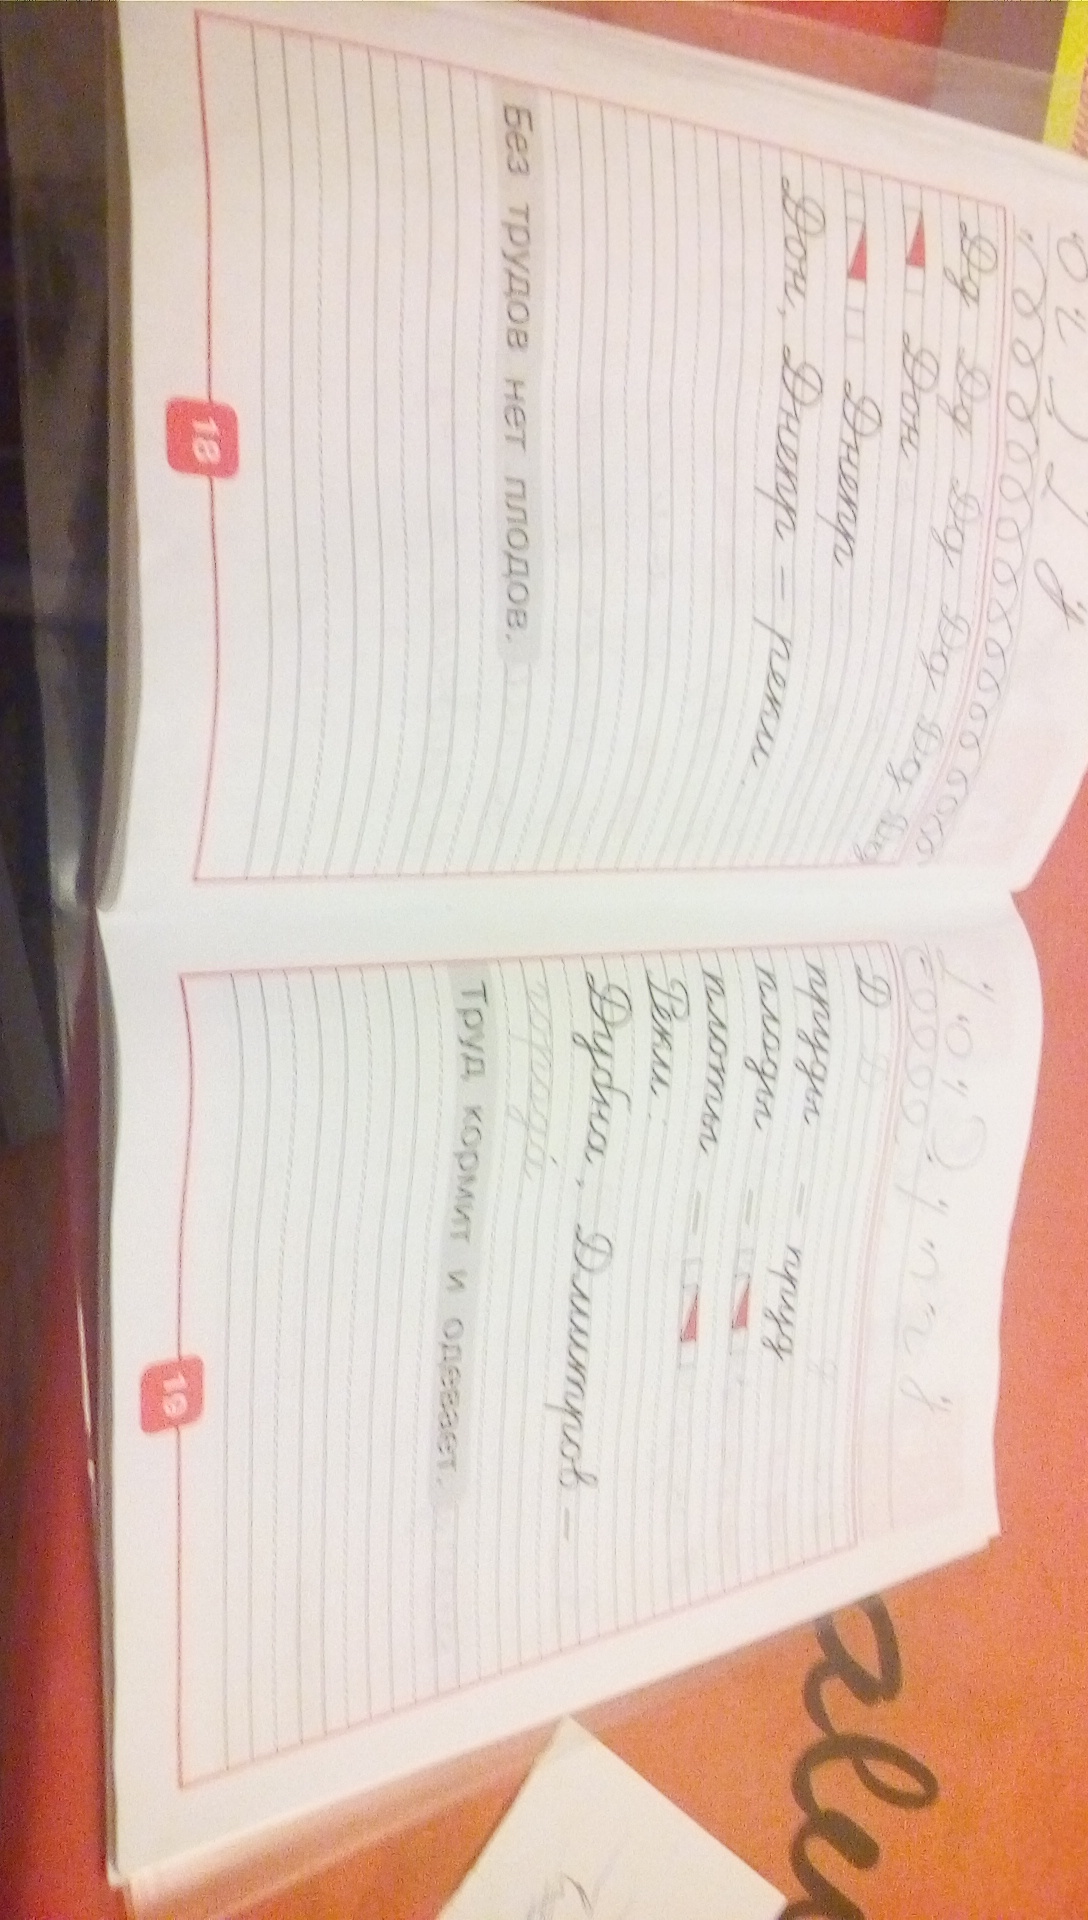 Дд Дд Дд Дд Дд Дд
Дон
Днепр
Дон, Днепр – реки.
Без трудов нет плодов.
18
Д
пруды – пруд
плоды –
плоты –
Реки.
Дубна, Дмитров –
города.
Труд кормит и одевает.
19